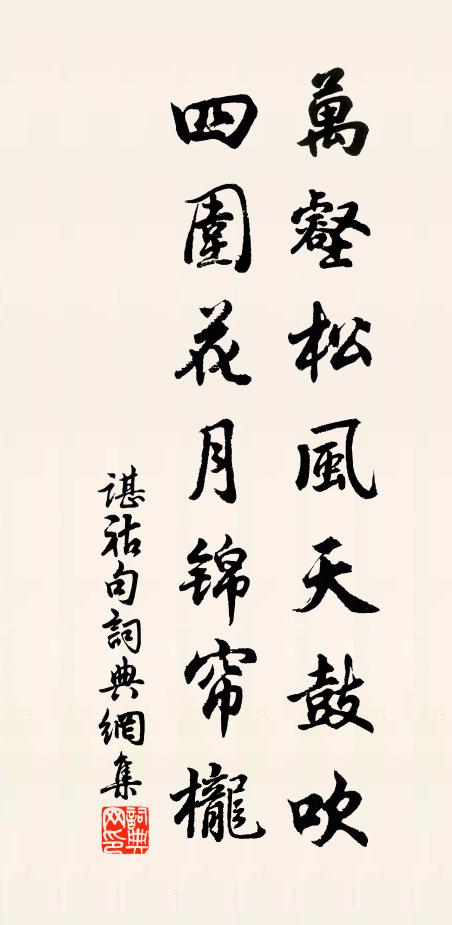 萬壑松風天鼓吹
四圍花月錦帘櫳
諶祜句詞典網集
詞典网印